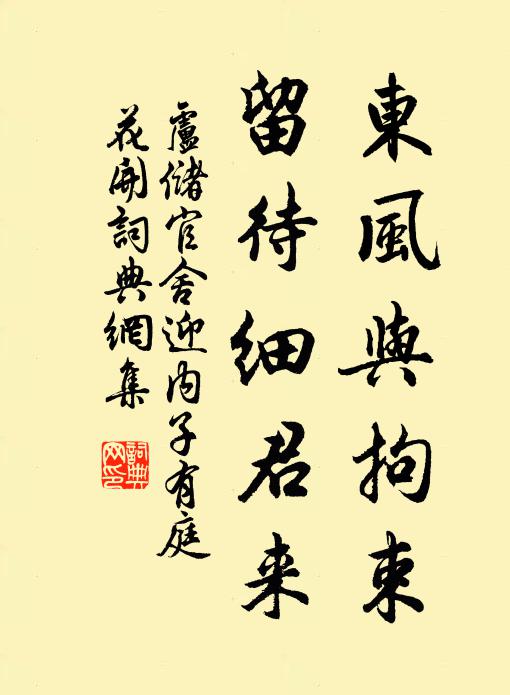 東風與拘束
留待細君来
盧儲官舍迎内子有庭
花開詞典網集
詞典
网印